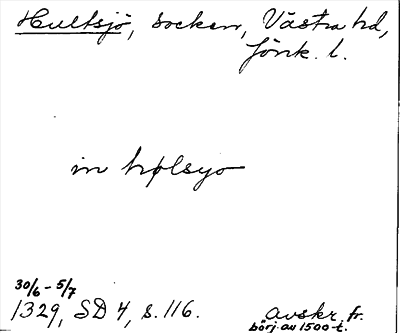 Hultsjö, socken, Västra hd,
Jönk. l.
in hølsyo
30/6 - 5/7
1329, SD 4, s. 116.
avskr. fr.
börj. av 1500-t.